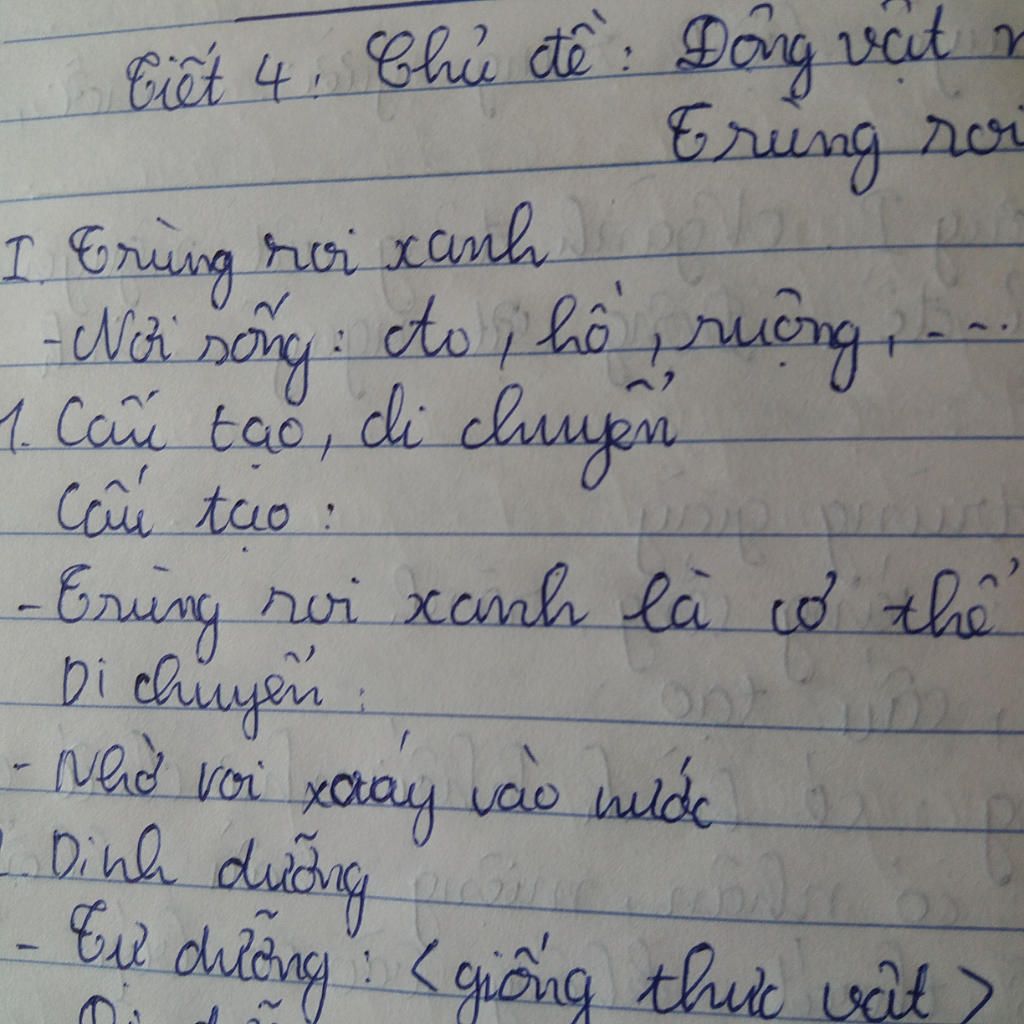 Tiết 4: Chủ đề: Động vật
Trùng roi
I. Trùng roi xanh
- Nơi sống: ao, hồ, ruộng, ...
1. Cấu tạo, di chuyển
Cấu tạo:
- Trùng roi xanh là cơ thể
Di chuyển:
- Nhờ roi xoáy vào nước
Dinh dưỡng
- Tự dưỡng: <giống thực vật>